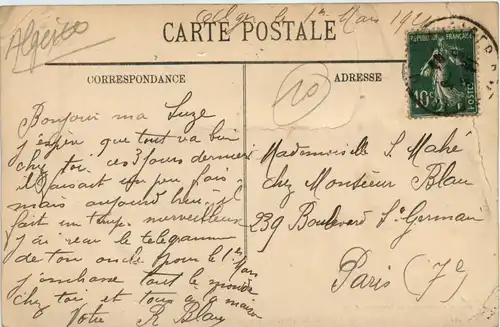 Algérie
Alger le 1er Mars 192
CARTE POSTALE
CORRESPONDANCE
ADRESSE
10
REPUBLIQUE FRANÇAISE
10c
POSTES
Bonjour ma Suze
j'espère que tout va bien
chez toi. ces 3 jours derniers
il faisait un peu frais
mais aujourd'hui il
fait un temps merveilleux
j'ai reçu le telegramme
de ton oncle pour le 1er Mars
j'embrasse tout le monde
chez toi et tous à la maison
Votre R Blau
Mademoiselle S. Mahé
chez Monsieur Blau
239 Boulevard St German
Paris (7e)